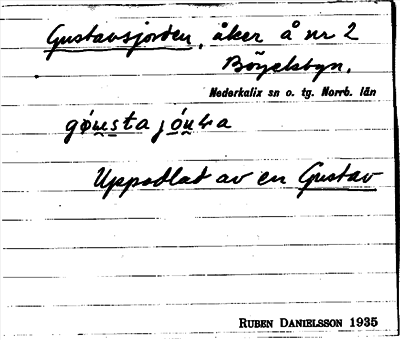 Gustavsjorden, åker å nr 2
Böjelsbyn.
Nederkalix sn o. tg. Norrb. län
Uppodlad av en Gustav
RUBEN DANIELSSON 1935